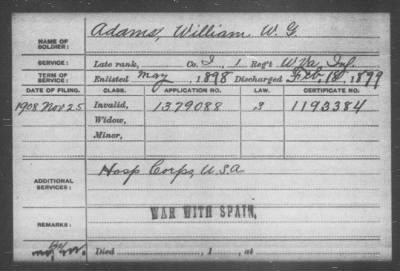 NAME OF SOLDIER: Adams, William W. G.
SERVICE: Late rank, Co. I, 1 Reg't W Va. Inf.
TERM OF SERVICE: Enlisted May, 1898 Discharged Feb. 18, 1899
DATE OF FILING. CLASS. APPLICATION NO. LAW. CERTIFICATE NO.
1908 Nov 25 Invalid, 1379088 3 1193384
Widow,
Minor,
ADDITIONAL SERVICES: Hosp Corps, U.S.A
WAR WITH SPAIN,
REMARKS:
Died , 1 , at